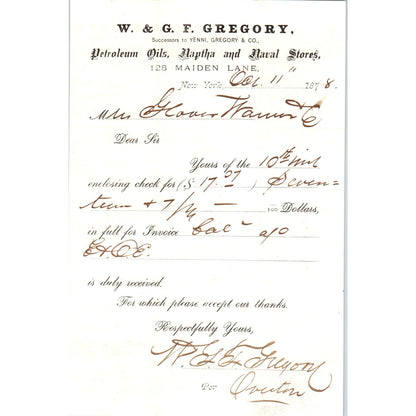 W. & G. F. GREGORY,
Successors to YENNI, GREGORY & CO.,
Petroleum Oils, Naptha and Naval Stores,
126 MAIDEN LANE,
New York, Oct 11" 1878.
Mess Glover Warner & C
Dear Sir
Yours of the 10th inst
enclosing check for ($ 17.07) Seven=
teen + 7/ — 100 Dollars,
in full for Invoice a/o
E. & O. E.
is duly received.
For which please accept our thanks.
Respectfully Yours,
W. & G. F. Gregory
Per Overton